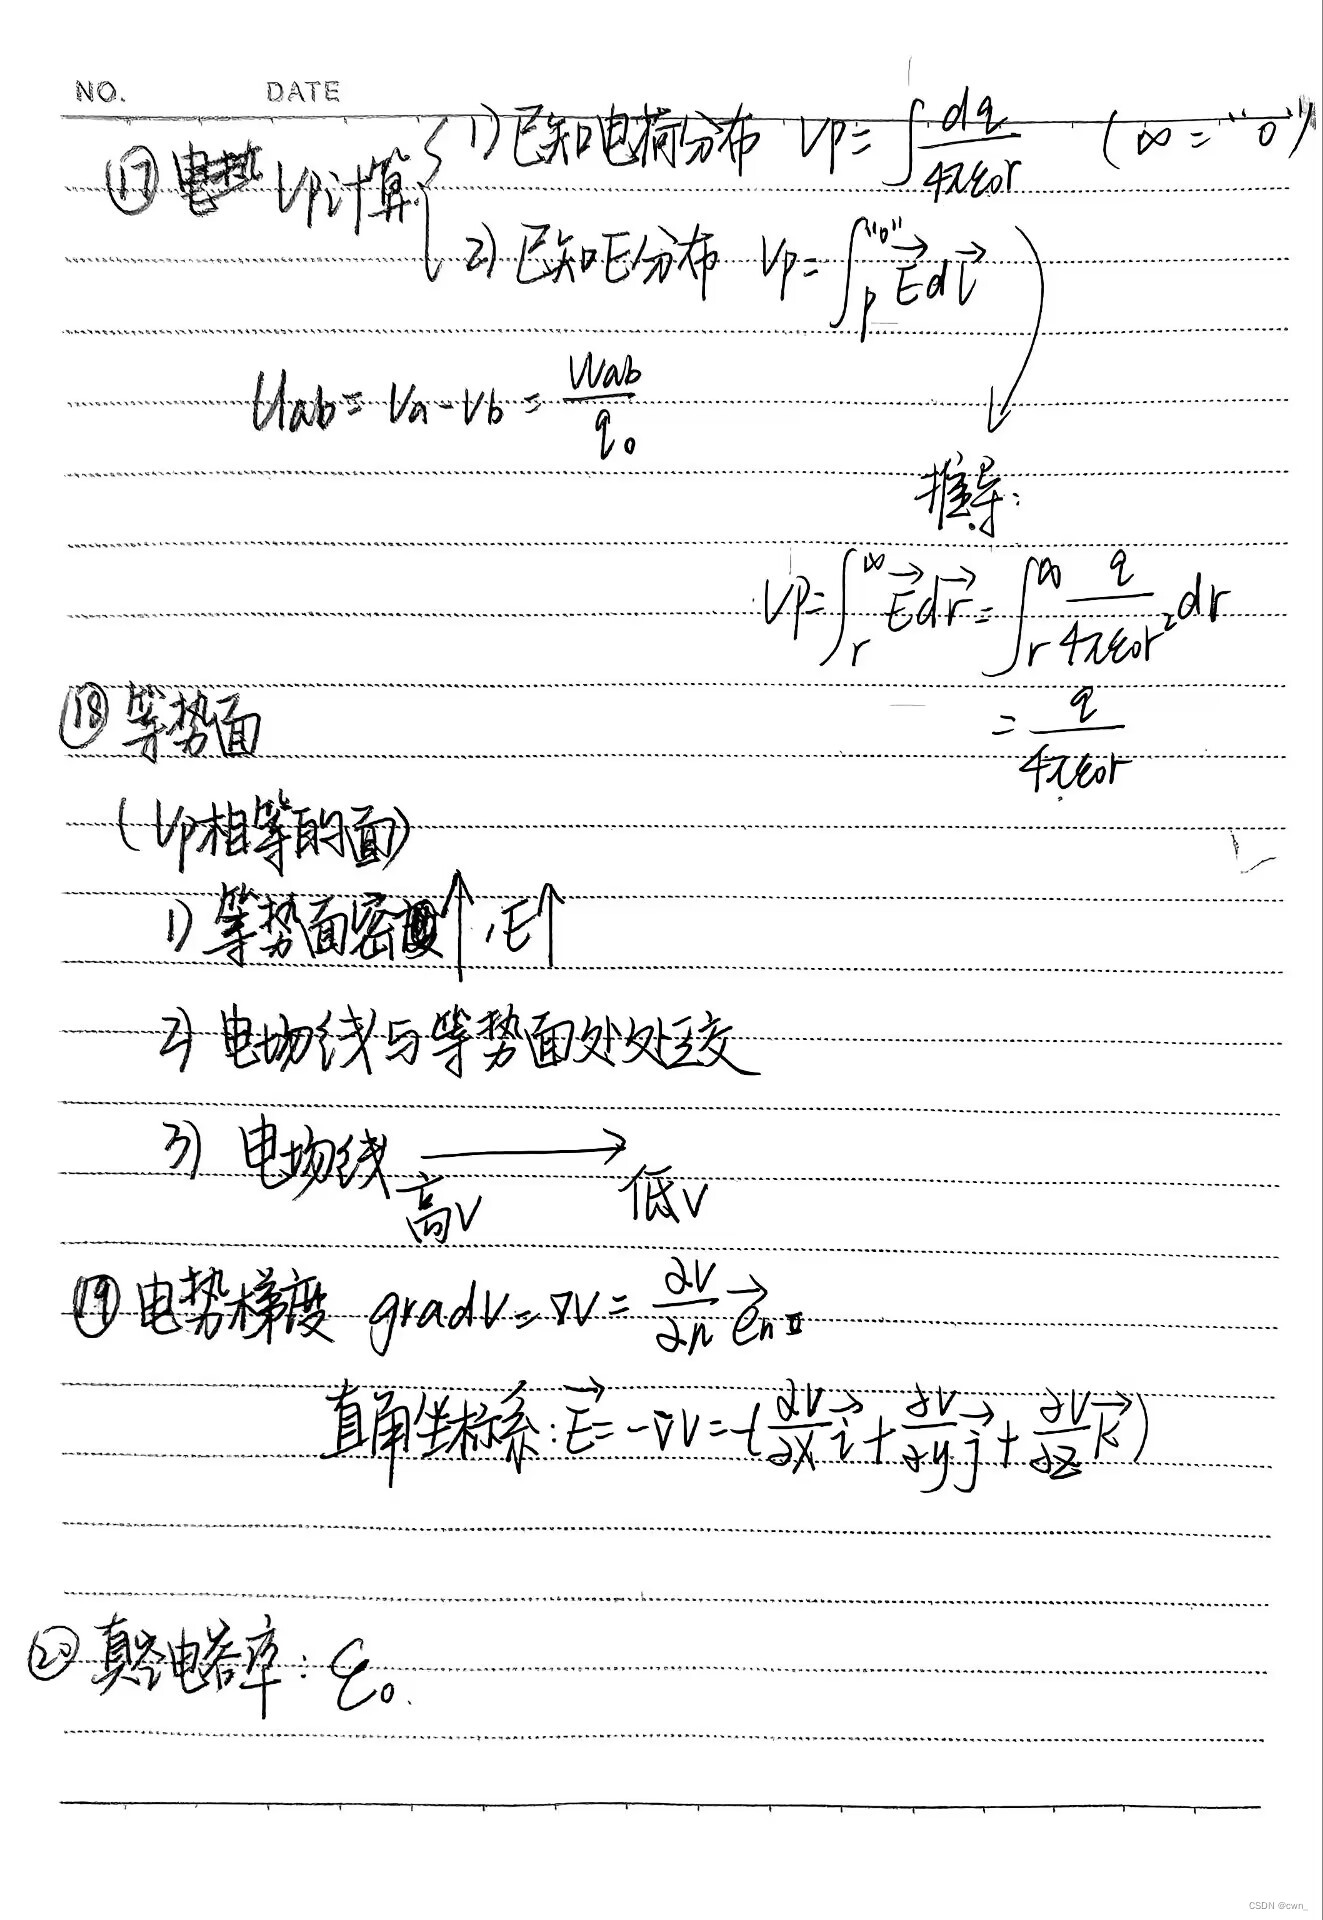 NO. DATE
⑰ 电势 Vp计算 { 1) 已知电荷分布 Vp = ∫ dq/4πε0r (∞ = "0")
2) 已知E分布 Vp = ∫p^"0" E⃗ dl⃗
Uab = Va - Vb = Wab/q0
推导:
Vp = ∫r^∞ E⃗ dr⃗ = ∫r^∞ q/4πε0r² dr
= q/4πε0r
⑱ 等势面
(Vp相等的面)
1) 等势面密度↑, E↑
2) 电场线与等势面处处正交
3) 电场线 ⟶
高V 低V
⑲ 电势梯度 gradV = ∇V = ∂V/∂n e⃗n
直角坐标系: E⃗ = -∇V = -(∂V/∂x i⃗ + ∂V/∂y j⃗ + ∂V/∂z k⃗)
⑳ 真空电容率: ε0.
CSDN @cwn_